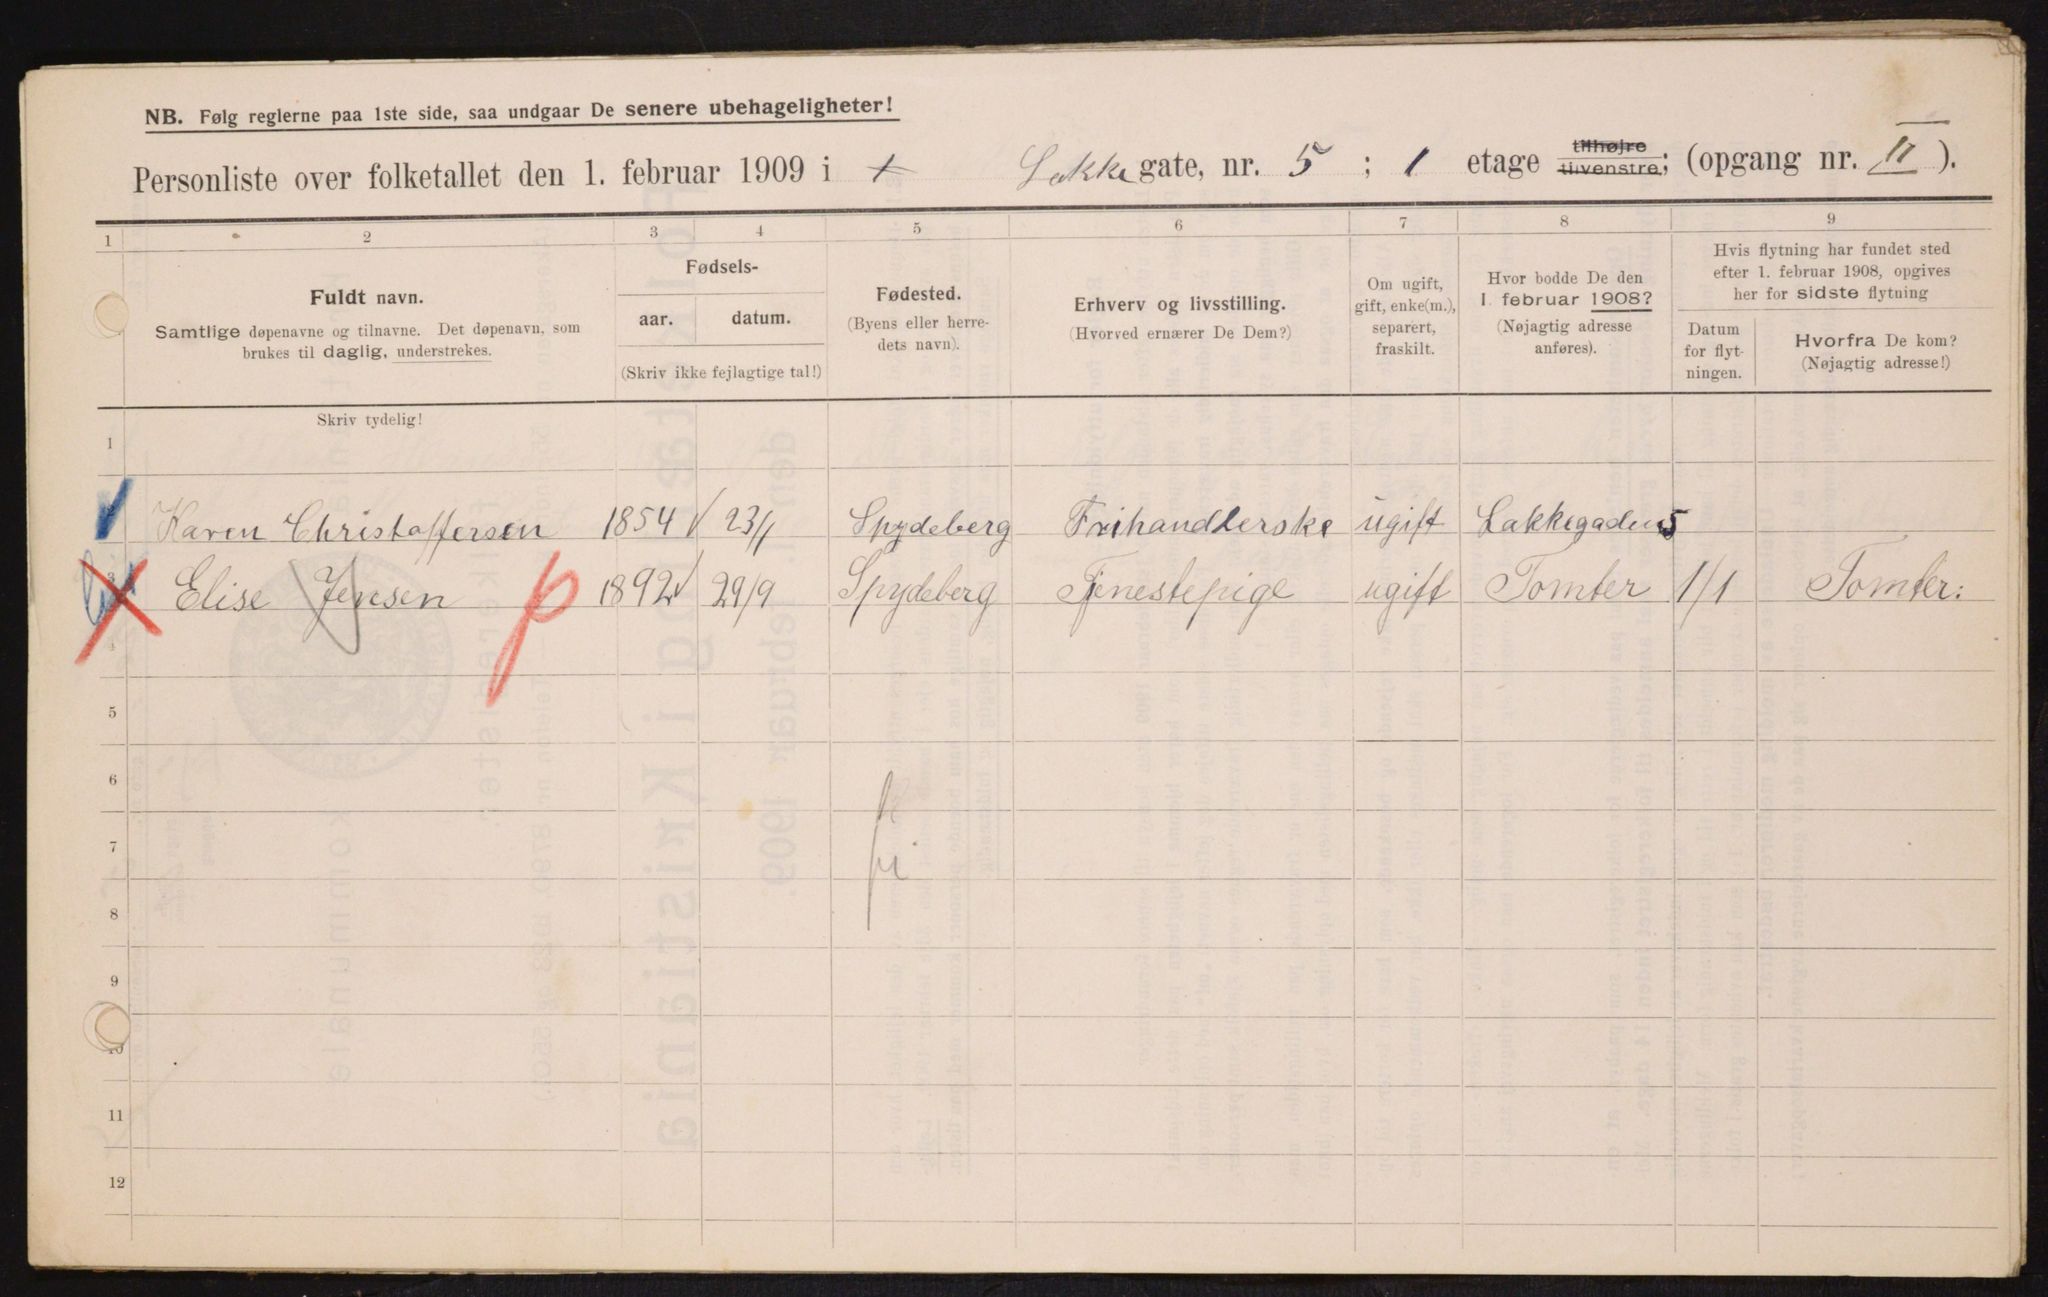 NB. Følg reglerne paa 1ste side, saa undgaar De senere ubehageligheter!
Personliste over folketallet den 1. februar 1909 i + Lakkegate, nr. 5 ; 1 etage tilhøjre tilvenstre; (opgang nr. II ).
1 2 3 4 5 6 7 8 9
Fuldt navn.
Samtlige døpenavne og tilnavne. Det døpenavn, som
brukes til daglig, understrekes.
Fødsels-
aar. datum.
(Skriv ikke fejlagtige tal!)
Fødested.
(Byens eller herre-
dets navn).
Erhverv og livsstilling.
(Hvorved ernærer De Dem?)
Om ugift,
gift, enke(m.),
separert,
fraskilt.
Hvor bodde De den
1. februar 1908?
(Nøjagtig adresse
anføres).
Hvis flytning har fundet sted
efter 1. februar 1908, opgives
her for sidste flytning
Datum
for flyt-
ningen.
Hvorfra De kom?
(Nøjagtig adresse!)
Skriv tydelig!
1
2 Karen Christoffersen 1854 23/1 Spydeberg Frihandlerske ugift Lakkegaden 5
3 Elise Jensen p 1892 29/9 Spydeberg Tjenestepige ugift Tomter 1/1 Tomter:
4
5
6
7
8
9
10
11
12